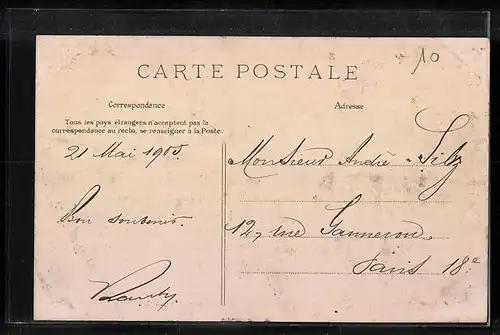 10
CARTE POSTALE
Correspondance
Adresse
Tous les pays étrangers n'acceptent pas la
correspondance au recto, se renseigner à la Poste.
21 Mai 1905.
Bon souvenir.
Monsieur André Silz
12, rue Ganneron.
Paris 18e